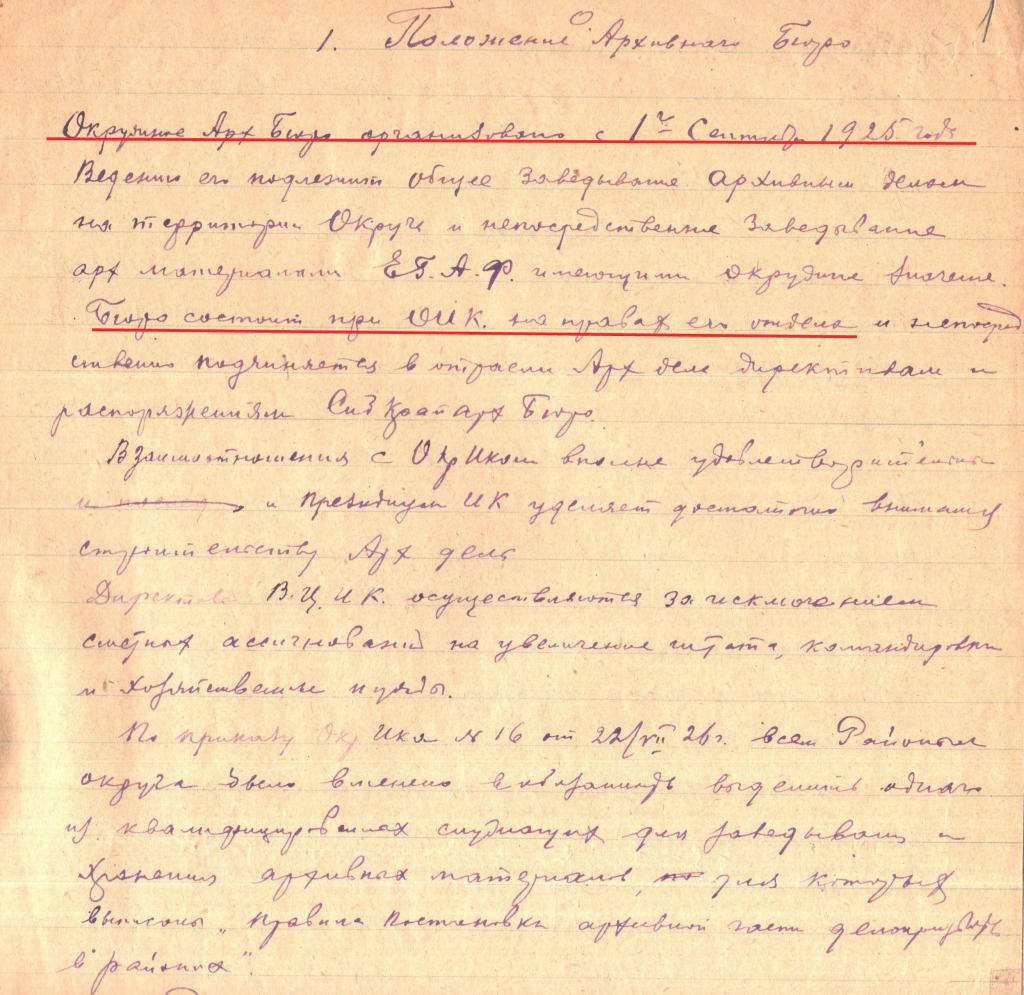 1
1. Положение Архивного Бюро
Окружное Арх Бюро организовано с 1го Сентября 1925 года
Ведению его подлежит общее заведывание архивным делом
на территории Округа и непосредственное заведывание
арх материалами Е.Г.А.Ф. имеющими окружное значение.
Бюро состоит при ОИК. на правах его отдела и непосред
ственно подчиняется в отрасли Арх дела директивам и
распоряжениям Сиб Край арх Бюро.
Взаимоотношения с ОкрИком вполне удовлетворительны
и Президиум ИК уделяет достаточно внимания
строительству Арх дела
Директивы В.Ц.И.К. осуществляются за исключением
сметных ассигнований на увеличение штата, командировки
и хозяйственные нужды.
По приказу Окр Ика № 16 от 22/VII 26 г. всем Районам
округа было вменено в обязанность выделить одного
из квалифицированных служащих для заведывания и
хранения архивных материалов, для которых
высланы „Правила постановки архивной части делопроизв
в районах".